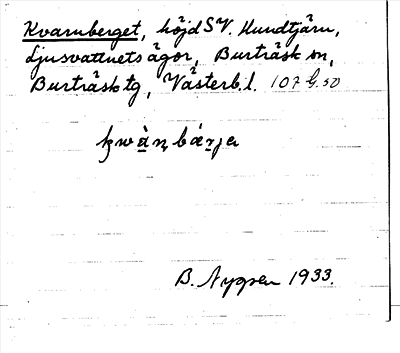 Kvarnberget, höjd SV. Hundtjärn,
Ljusvattnets ägor, Burträsk sn,
Burträsk tg, Västerb. l. 107 G. 50
B. Nygren 1933.